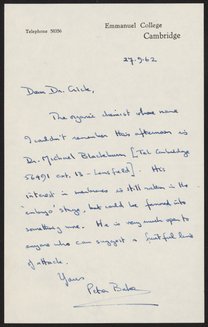 Emmanuel College
Telephone 50356
Cambridge
27.9.62
Dear Dr. Crick,
The organic chemist whose name
I couldn't remember this afternoon is
Dr. Michael Blackburn [Tel. Cambridge
56491 ext. 13 - Lensfield]. His
interest in membranes is still rather in the
'embryo' stage, but could be formed into
something more. He is very much open to
anyone who can suggest a fruitful line
of attack.
Yours
Peter Baker